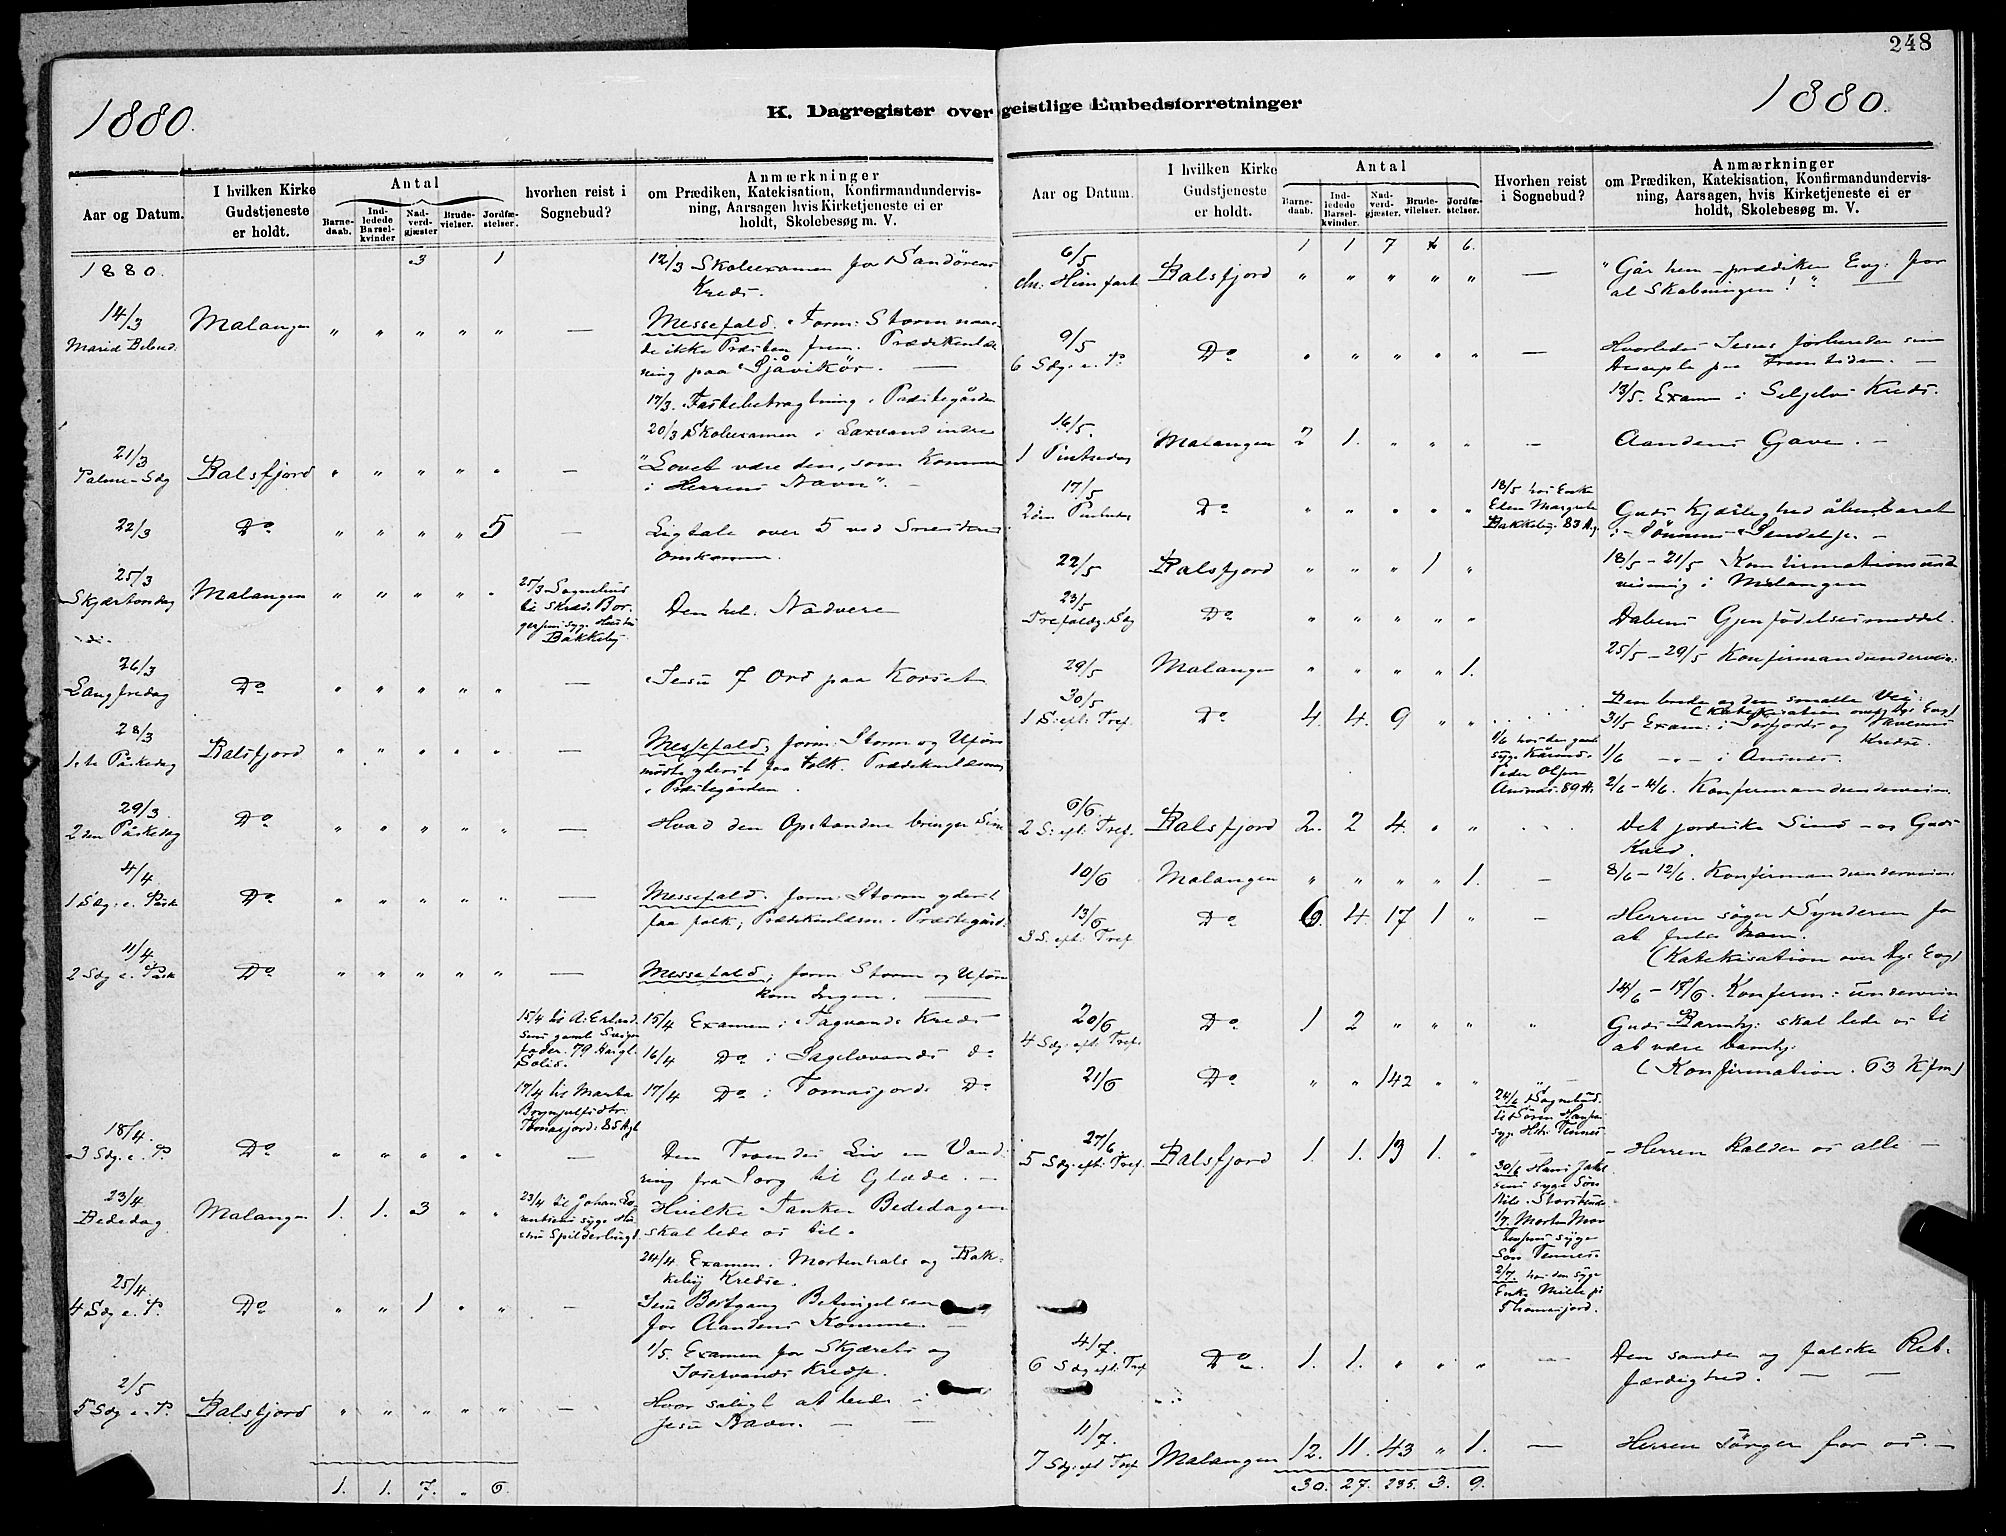 248
1880.
K. Dagregister over geistlige Embedsforretninger
1880.
Aar og Datum.
I hvilken Kirke
Gudstjeneste
er holdt.
Antal
Barne-
daab.
Ind-
ledede
Barsel-
kvinder
Nad-
verd-
gjæster
Brude-
vielser.
Jordfæ-
stelser.
hvorhen reist i
Sognebud?
Anmærkninger
om Prædiken, Katekisation, Konfirmandundervis-
ning, Aarsagen hvis Kirketjeneste ei er
holdt, Skolebesøg m. V.
1880. 3 1 12/3 Skoleexamen for Sandørens
Kreds.
14/3 Malangen " " " " " — Messefald. Form: Storm naae-
Mariæ Bebud: de ikke Præsten frem. Prædikenlæs
ning paa Sjåvikør. —
17/3. Fastebetragtning i Præstegården
20/3 Skoleexamen i Laxvand indre
21/3
Palme-Sdg Balsfjord " " " " " — "Lovet være den, som kommer
i Herrens Navn". —
22/3 Do " " " " 5 — Ligtale over 5 ved
Omkomne.
25/3
Skjærtorsdag Malangen " " " " " 25/3 Sognebud
til Skræd. Bor-
gersens syge Hustru
Bakkeby
Den hel. Nadvere
26/3
Langfredag Do " " " " " — Jesu 7 Ord paa Korset
28/3
1ste Påskedag Balsfjord " " " " " — Messefald, form: Storm og Uføre
mødte yderst faa Folk. Prædikenlæsning
i Præstegården.
29/3.
2den Påskedag Do " " " " " — Hvad den Opstandne bringer Sine
4/4
1 Sdg. e. Påsk Do " " " " " — Messefald. form: Storm yderst
faa folk; Prædikenlæsn. i Præstegård.
11/4
2 Sdg e. Påsk Do " " " " " — Messefald, form Storm og Uføre
kom Ingen. —
15/4 til A: Erland
sens gamle Sviger
fader. 79
15/4 Examen i Tagvands Kreds
16/4 Do i Sagelvvands do
17/4 til Marta
Brynjulfsdtr.
Tomasjord: 85 Aar
17/4 Do i Tomasjords Do
18/4.
3 Sdg. e. P. Do " " " " " — Den Troendes Liv en Vand
ring fra Sorg til Glæde. —
23/4
Bededag Malangen 1. 1. 3 " " 23/4 til Johan
syge Hu
stru Spilderbugt
Hvilke Tanker Bededagen
skal lede os til.
24/4 Examen i Mortenhals og Bak-
keby Kredse.
25/4
4 Sdg e. P. Do " " 1 " " — Jesu Bortgang Betingelsen
for Aandens Komme. —
1/5. Examen for Skjærets og
Josefvands Kredse
2/5
5 Sdg e. P. Balsfjord " " " " " — Hvor saligt at bede i
Jesu Navn. — —
1. 1. 7. " 6.
Aar og Datum.
I hvilken Kirke
Gudstjeneste
er holdt.
Antal
Barne-
daab.
Ind-
ledede
Barsel-
kvinder.
Nad-
verd-
gjæster.
Brude-
vielser.
Jordfæ-
stelser.
Hvorhen reist
i Sognebud?
Anmærkninger
om Prædiken, Katekisation, Konfirmandundervis-
ning, Aarsagen, hvis Kirketjeneste ei er
holdt, Skolebesøg m. V.
1 1 7 6.
6/5
chr: Himfart Balsfjord " " " " " — "Går hen – prædiker Evg: for
al Skabningen!"
9/5
6 Sdg. e. P. Do " " " " " — Hvorledes Jesus forbereder sine
Disciple paa Fremtiden. —
13/5. Exam i Seljelvs Kreds.
16/5.
1 Pintsedag Malangen 2 1. " " " — Aandens Gave. —
17/5
2den Pintsedag Do " " " " " 18/5 hos Enke
Elen Margrete
Bakkeby. 83 A.
Guds Kjærlighed åbenbaret
i Sønnens Sendelse. —
22/5 Balsfjord " " " 1 " 18/5 – 21/5 Konfirmationsund
visning i Malangen
23/5
Trefoldg. Sdg Do " " " " " Dabens Gjenfødelsesmeddel.
25/5 – 29/5 Konfirmandunderviis:
29/5 Malangen " " " " 1.
30/5
1 S: eft: Tref. Do 4. 4. 9 " " Den brede og den smalle Vej
(Katekisation over tys Evg)
31/5 Exam: i Sørfjords og
Kredse.
1/6 hos den gaml
syge
Peder Olsen
Aursnes. 89 A.
1/6 — " — i Aursnes.
2/6 – 4/6. Konfirmandunderviis.
6/6.
2 S: eft: Tref. Balsfjord 2. 2 4. " " Det jordiske Sind – os Guds
Kald.
10/6 Malangen " " " " 1. — 8/6 – 12/6. Konfirmandunderviis:
13/6
3 S. eft: Tref. Do 6. 4. 17 1 " — Herren søger Synderen for
at frelse ham.
(Katekisation over tys Evg)
14/6 – 18/6. Konfirm: underviis
20/6
4 Sdg. eft Tref. Do 1 2 " " " " Guds Barmhj: skal lede os til
at være barmhj:
21/6 Do " " 142 " " (Konfirmation. 63 Kfm)
24/6 Sognebud
til Søren Hansens
syge Hstr. Tennes
27/6
5 Sdg: eft: Tref. Balsfjord 1. 1. 13 1. " — Herren kalder os alle —
30/6 Hans Jakob
sens syge Søn
Nils. Storstennes
1/7. Morten Mor
tensens syge
Søn Tennes.
2/7. hos den syge
Enke
Thomasjord.
4/7.
6 Sdg eft: Tref Do. 1. 1. " " " — Den sande og falske Ret-
færdighed. — —
11/7.
7 Sdg: eft Tref. Malangen 12. 11. 43 " 1. — Herren sørger for os. —
30. 27. 235. 3. 9.